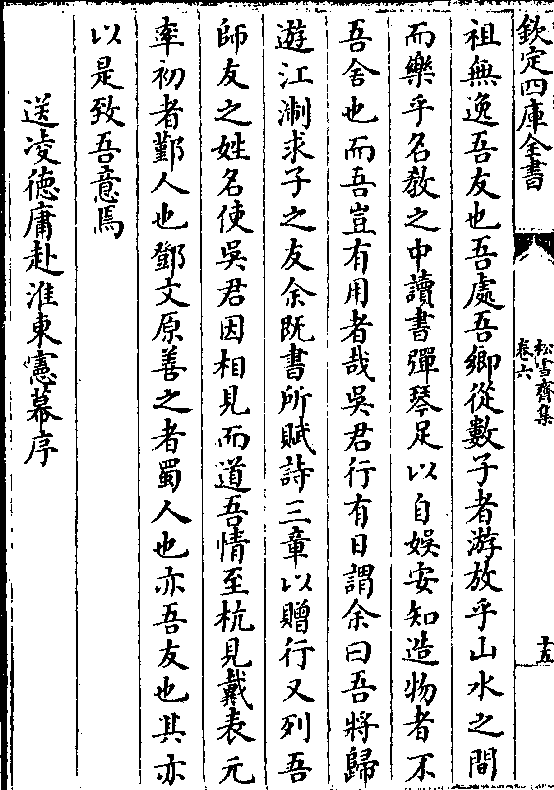 欽定四庫全書
松雪齋集
卷六
十五
祖無逸吾友也吾處吾鄉從數子者游放乎山水之間
而樂乎名教之中讀書彈琴足以自娛安知造物者不
吾舍也而吾豈有用者哉吳君行有日謂余曰吾將歸
遊江淛求子之友余既書所賦詩三章以贈行又列吾
師友之姓名使吳君因相見而道吾情至杭見戴表元
率初者鄞人也鄧文原善之者蜀人也亦吾友也其亦
以是致吾意焉
送凌德庸赴淮東憲幕序